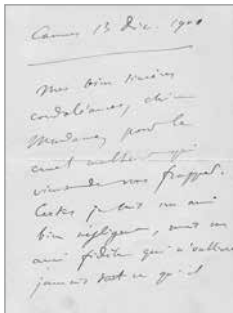 Cannes 13 Dec. 1900
Mes bien sincères
condoléances, chère
Madame, pour le
cruel malheur qui
vient de vous frapper.
Certes je suis un ami
bien négligent, mais un
ami fidèle qui n'oublie
jamais tout ce qu'il